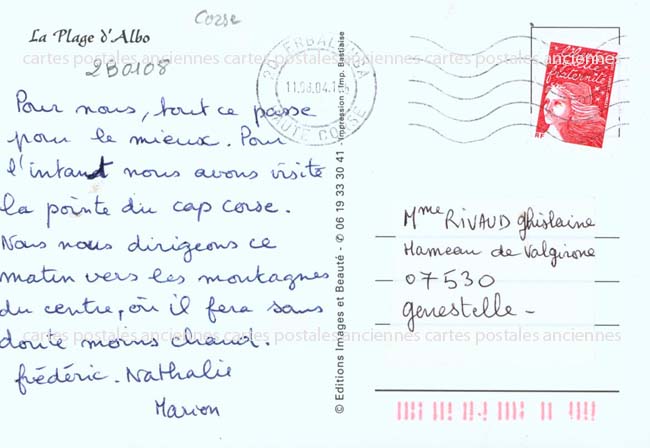 Corse
La Plage d'Albo
2B0108
Pour nous, tout ce passe
pour le mieux. Pour
l'intant nous avons visité
la pointe du cap corse.
Nous nous dirigeons ce
matin vers les montagnes
du centre, où il fera sans
doute moins chaud.
frédéric. Nathalie
Marion
© Editions Images et Beauté - ✆ 06 19 33 30 41 - Impression : Imp. Bastiaise
HAUTE CORSE
l'Eau belle
fraternité
RF
Mme RIVAUD Ghislaine
Hameau de Valgironne
07530
Genestelle -
cartes postales anciennes cartes postales anciennes cartes postales anciennes
cartes postales anciennes cartes postales anciennes cartes postales anciennes